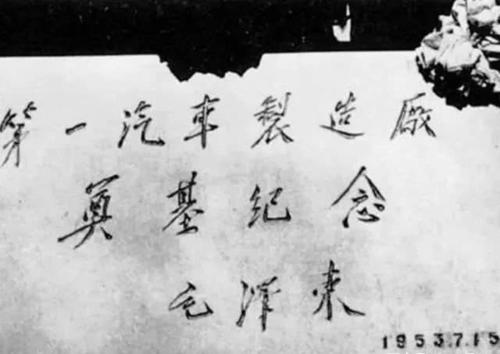 第一汽車製造廠
奠基紀念
毛泽東
1953.7.15